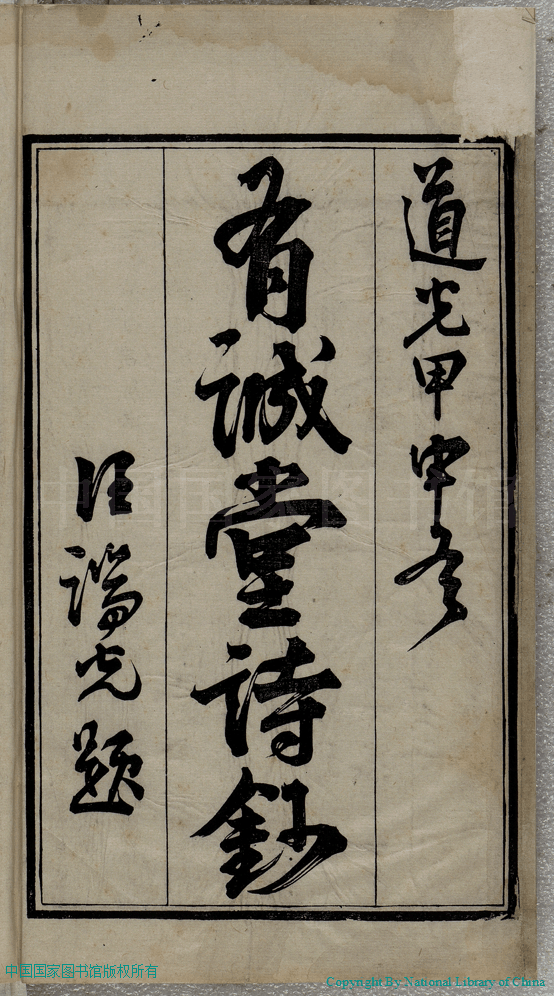 道光甲申冬
有誠堂詩鈔
汪端光題
中国国家图书馆
中国国家图书馆版权所有
Copyright By National Library of China